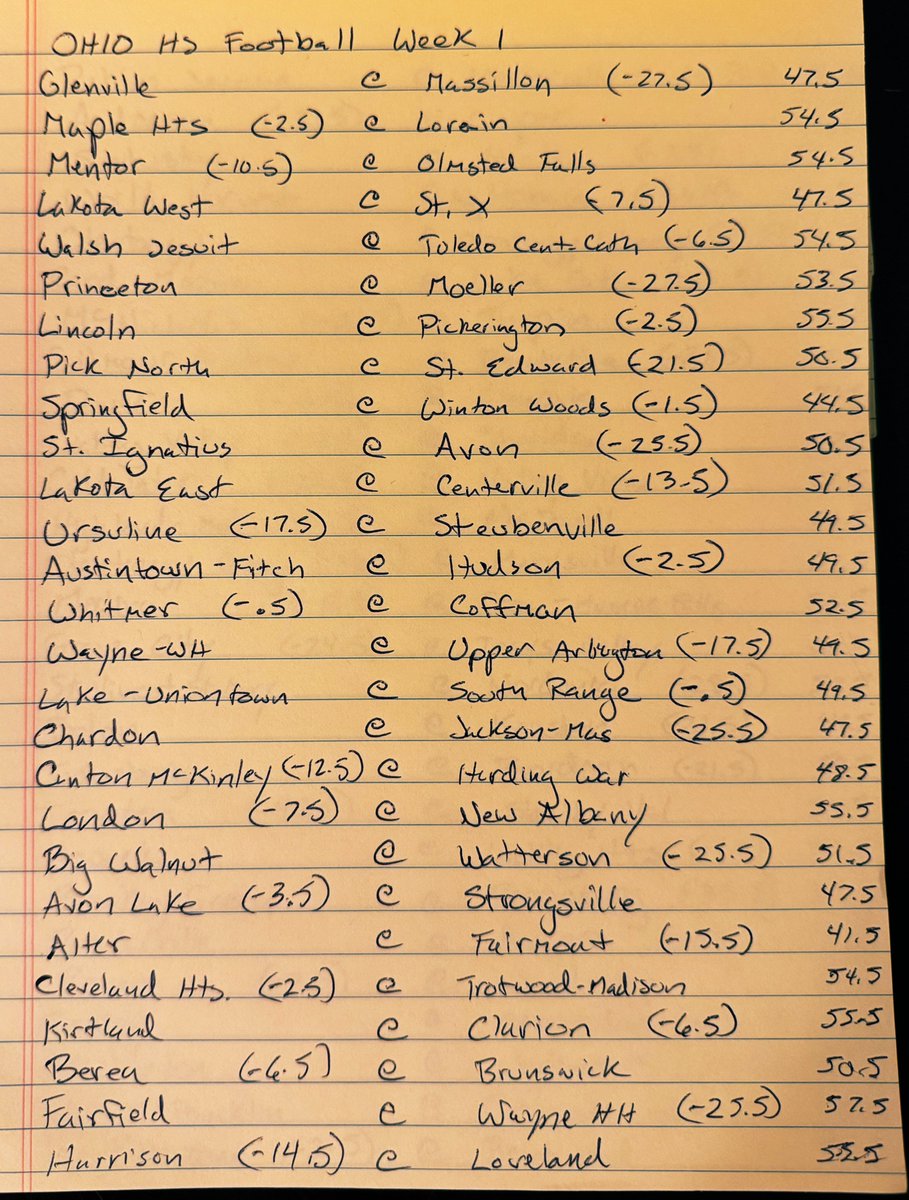 OHIO HS Football Week 1
Glenville @ Massillon (-27.5) 47.5
Maple Hts (-2.5) @ Lorain 54.5
Mentor (-10.5) @ Olmsted Falls 54.5
Lakota West @ St. X (-7.5) 47.5
Walsh Jesuit @ Toledo Cent-Cath (-6.5) 54.5
Princeton @ Moeller (-27.5) 53.5
Lincoln @ Pickerington (-2.5) 55.5
Pick North @ St. Edward (-21.5) 50.5
Springfield @ Winton Woods (-1.5) 44.5
St. Ignatius @ Avon (-25.5) 50.5
Lakota East @ Centerville (-13.5) 51.5
Ursuline (-17.5) @ Steubenville 49.5
Austintown-Fitch @ Hudson (-2.5) 49.5
Whitmer (-.5) @ Coffman 52.5
Wayne-WH @ Upper Arlington (-17.5) 49.5
Lake-Uniontown @ South Range (-.5) 49.5
Chardon @ Jackson-Mas (-25.5) 47.5
Canton McKinley (-12.5) @ Harding War 48.5
London (-7.5) @ New Albany 55.5
Big Walnut @ Watterson (-25.5) 51.5
Avon Lake (-3.5) @ Strongsville 47.5
Alter @ Fairmont (-15.5) 41.5
Cleveland Hts. (-2.5) @ Trotwood-Madison 54.5
Kirtland @ Clarion (-6.5) 55.5
Berea (-6.5) @ Brunswick 50.5
Fairfield @ Wayne HH (-25.5) 57.5
Harrison (-14.5) @ Loveland